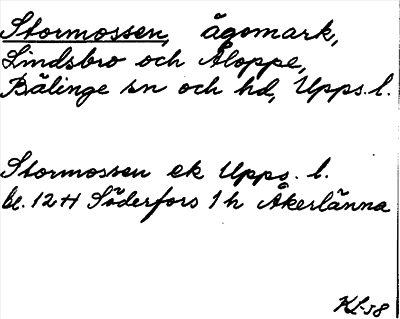 Stormossen, ägomark,
Lindsbro och Åloppe,
Bälinge sn och hd, Upps. l.
Stormossen ek Upps. l.
bl. 12 H Söderfors 1 h Åkerlänna
KL-58